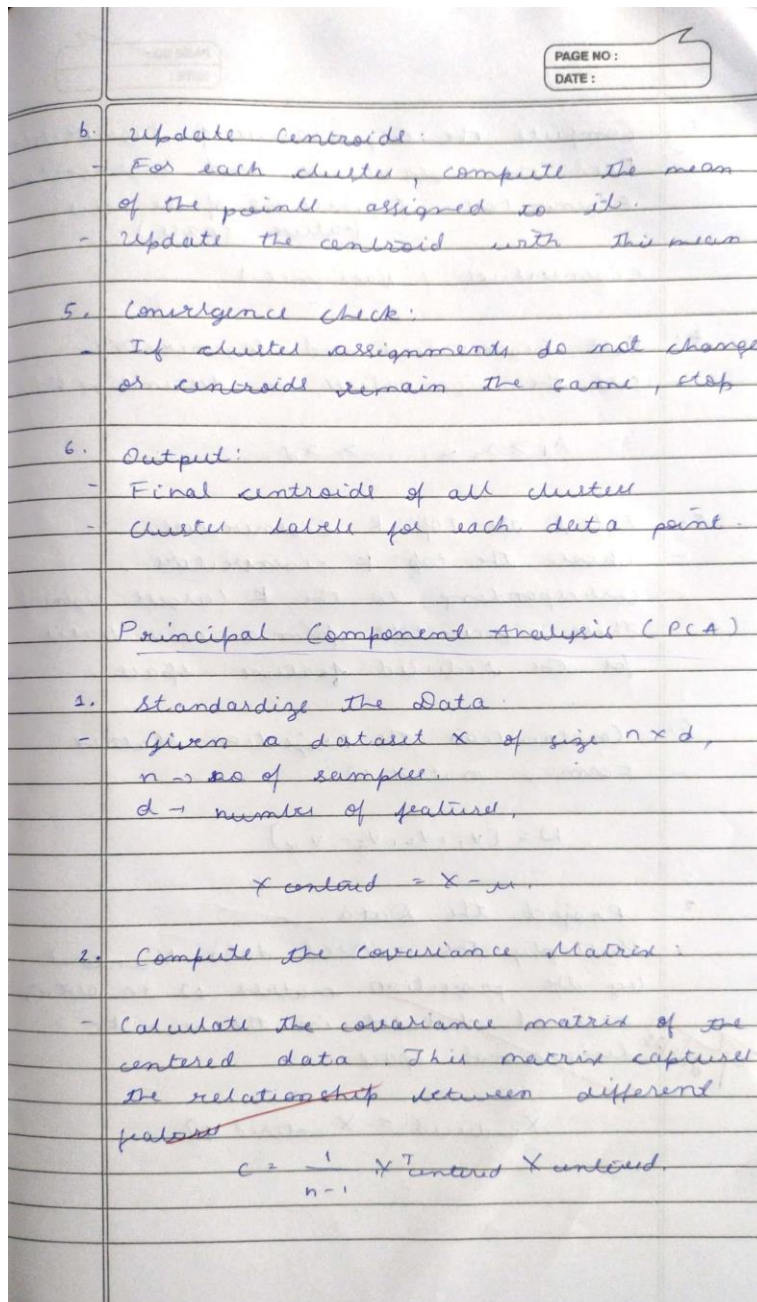 PAGE NO :
DATE :
b. Update Centroids:
- For each cluster, compute the mean
of the points assigned to it.
- Update the centroid with this mean
5. Convergence check:
- If cluster assignments do not change
or centroids remain the same, stop
6. Output:
- Final centroids of all clusters
- Cluster labels for each data point.
Principal Component Analysis (PCA)
1. Standardize the Data.
- Given a dataset X of size n x d,
n → no of samples.
d → number of features.
X centered = X - μ.
2. Compute the Covariance Matrix:
- Calculate the covariance matrix of the
centered data. This matrix captures
the relationship between different
features
C = 1/(n-1) X^T centered X centered.